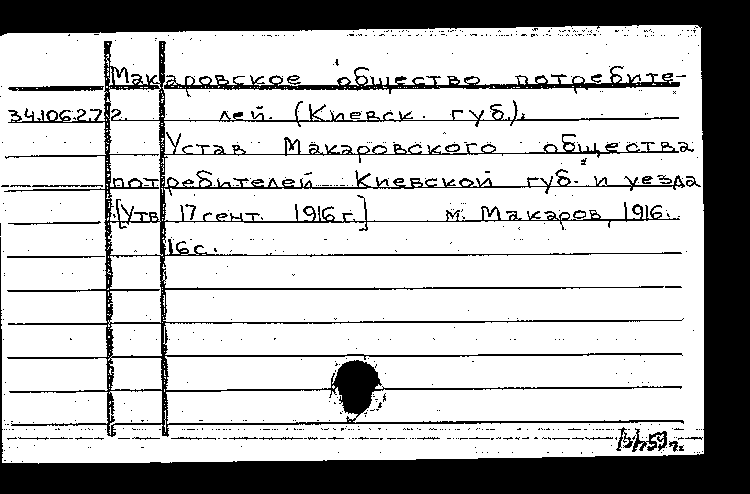 Макаровское общество потребите-
34.106.2.72. лей. (Киевск. губ.).
Устав Макаровского общества
потребителей Киевской губ. и уезда
[Утв 17 сент. 1916 г.] м. Макаров, 1916.
16 с.